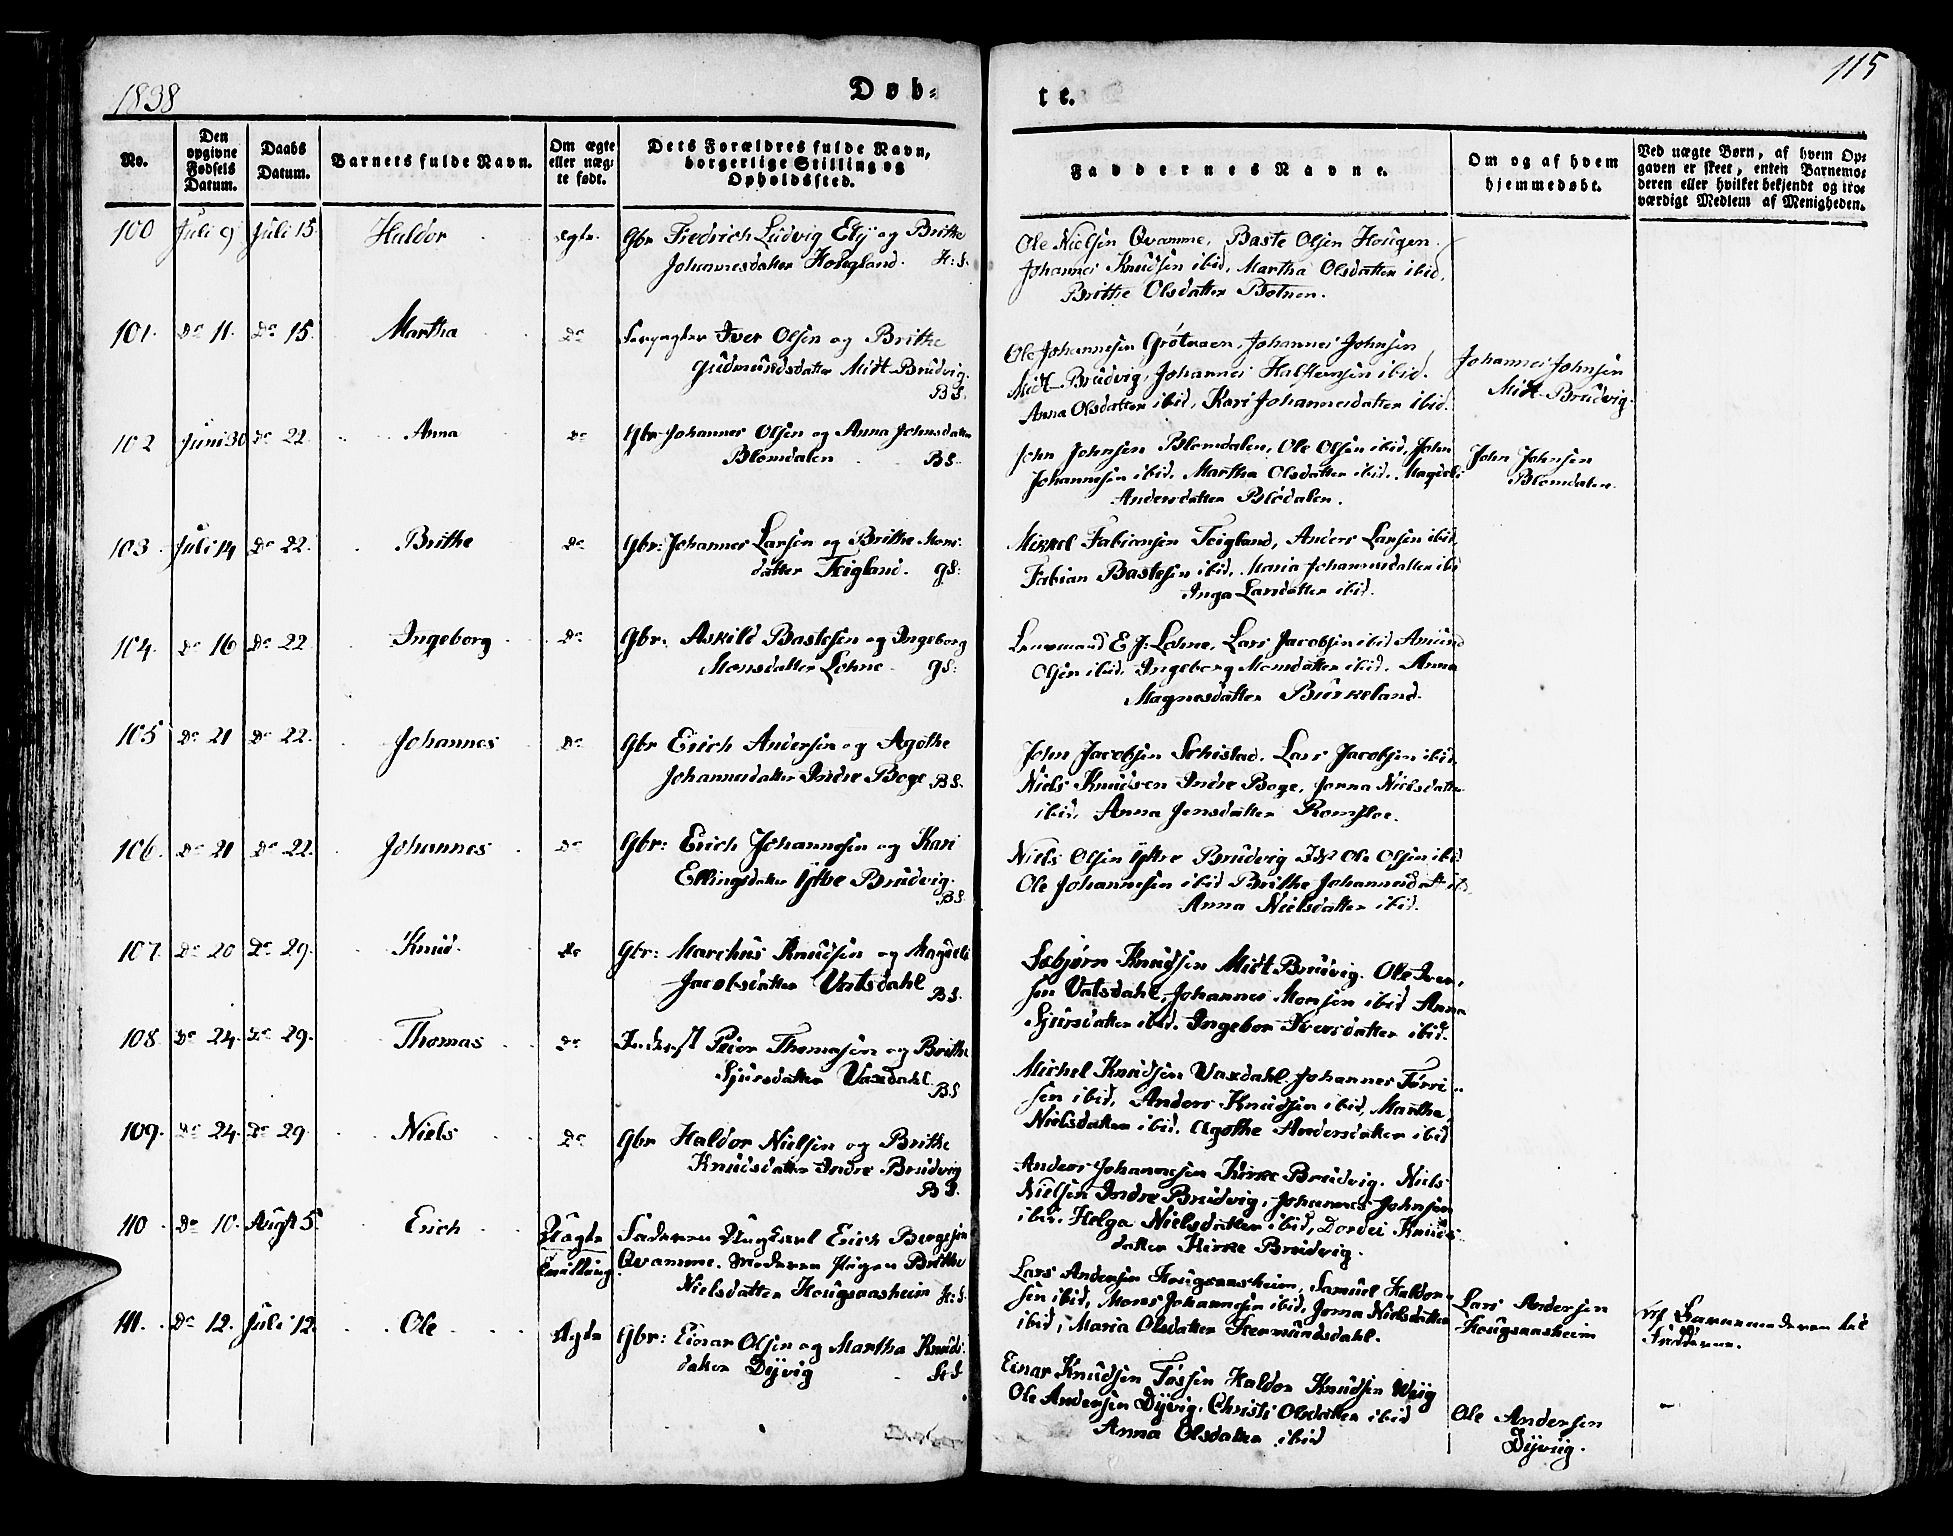 1838
Døb-
te.
115
No.
Den opgivne Fødsels Datum.
Daabs Datum.
Barnets fulde Navn.
Om ægte eller uægte født.
Dets Forældres fulde Navn, borgerlige Stilling og Opholdssted.
Faddernes Navne.
Om og af hvem hjemmedøbt.
Ved uægte Børn, af hvem Opgaven er skeet, enten Barnemoderen eller hvilket bekjendt og troværdigt Medlem af Menigheden.
100 Juli 9 Juli 15 Haldor ægte. Gbr Fredrich Ludvig Ely og Brithe
Johannesdatter Hougland. H:S.
Ole Nielsen Qvamme, Baste Olsen Hougen.
Johannes Knudsen ibid, Martha Olsdatter ibid,
Brithe Olsdatter Botnen.
101. Do 11. Do 15. Martha Do Iver Olsen og Brithe
Gudmundsdatter Midt-Brudvig.
BS.
Ole Johannesen Johannes Johnsen
Midt-Brudvig, Johannes Halstensen ibid.
Anna Olsdatter ibid, Kari Johannesdatter ibid.
Johannes Johnsen
Midt-Brudvig.
102 Juni 30 Do 22 Anna Do Gbr Johannes Olsen og Anna Johnsdatter
Blomdalen BS.
John Johnsen Blomdalen, Ole Olsen ibid, John
Johannesen ibid. Martha Olsdatter ibid. Magdeli
Andersdatter Blodalen.
John Johnsen
Blomdalen.
103. Juli 14 Do 22. Brithe Do Gbr: Johannes Larsen og Brithe Mons-
datter Teigland. GS:
Mikkel Fabiansen Teigland, Anders Larsen ibid,
Fabian Bastesen ibid, Maria Johannesdatter ibi
Inga Larsdatter ibid.
104. Do 16 Do 22 Ingeborg Do Gbr: Askild Bastesen og Ingeborg
Monsdatter Lohne. GS:
Lensmand E J: Lohne, Lars Jacobsen ibid Amund
Olsen ibid, Ingeborg Monsdatter ibid. Anna
Magnesdatter Birkeland.
105 Do 21 Do 22. Johannes Do Gbr Erich Andersen og Agathe
Johannesdatter Indre Boge BS.
John Jacobsen Schistad. Lars Jacobsen ibid.
Niels Knudsen Indre Boge, Jorna Nielsdatter
ibid. Anna Jensdatter Romsloe.
106. Do 21 Do 22. Johannes Do Gbr: Erich Johannesen og Kari
Ellingsdatter Ystre Brudvig.
BS.
Niels Olsen Ystre Brudvig Ole Olsen ibid
Ole Johannesen ibid Brithe Johannesdatt ib.
Anna Nielsdatter ibid.
107. Do 20 Do 29. Knud. Do Gbr: Marchus Knudsen og Magdeli
Jacobsdatter Vatsdahl BS.
Sæbjørn Knudsen Midt Brudvig. Ole Iver-
sen Vatsdahl, Johannes Monsen ibid Anna
Sjursdatter ibid. Ingebor Iversdatter ibid.
108. Do 24. Do 29. Thomas Do Inderst Peior Thomasen og Brithe
Sjursdatter Vaxdahl.
BS
Michel Knudsen Vaxdahl. Johannes Torri-
sen ibid, Anders Knudsen ibid, Martha
Nielsdatter ibid. Agathe Andersdatter ibid
109. Do 24. Do 29 Niels Do Gbr Haldor Nielsen og Brithe
Knudsdatter Indre Brudvig
BS.
Anders Johannesen Kirke Brudvig. Niels
Nielsen Indre Brudvig, Johannes Johnsen
ibid. Helga Nielsdatter ibid, Dordei Knuds-
datter Kirke Brudvig.
110 Do 10. Augst 5. Erich Uægte
Faderen Ungkarl Erich Børgesen
Qvamme. Moderen Pigen Brithe
Nielsdatter Hougsaasheim H:S.
Lars Andersen Hougsaasheim, Samuel Haldor-
sen ibid, Mons Johannesen ibid, Jorna Nielsdatter
ibid, Maria Olsdatter Hermundsdahl.
Lars Andersen
Hougsaasheim
af Barnemoderen
111. Do 12. Juli 12. Ole Ægte Gbr: Einar Olsen og Martha Knuds-
datter Dyvig St.S.
Einar Knudsen Haldor Knudsen
Ole Andersen Dyvig, Christi Olsdatter ibid
Anna Olsdatter ibid
Ole Andersen
Dyvig.